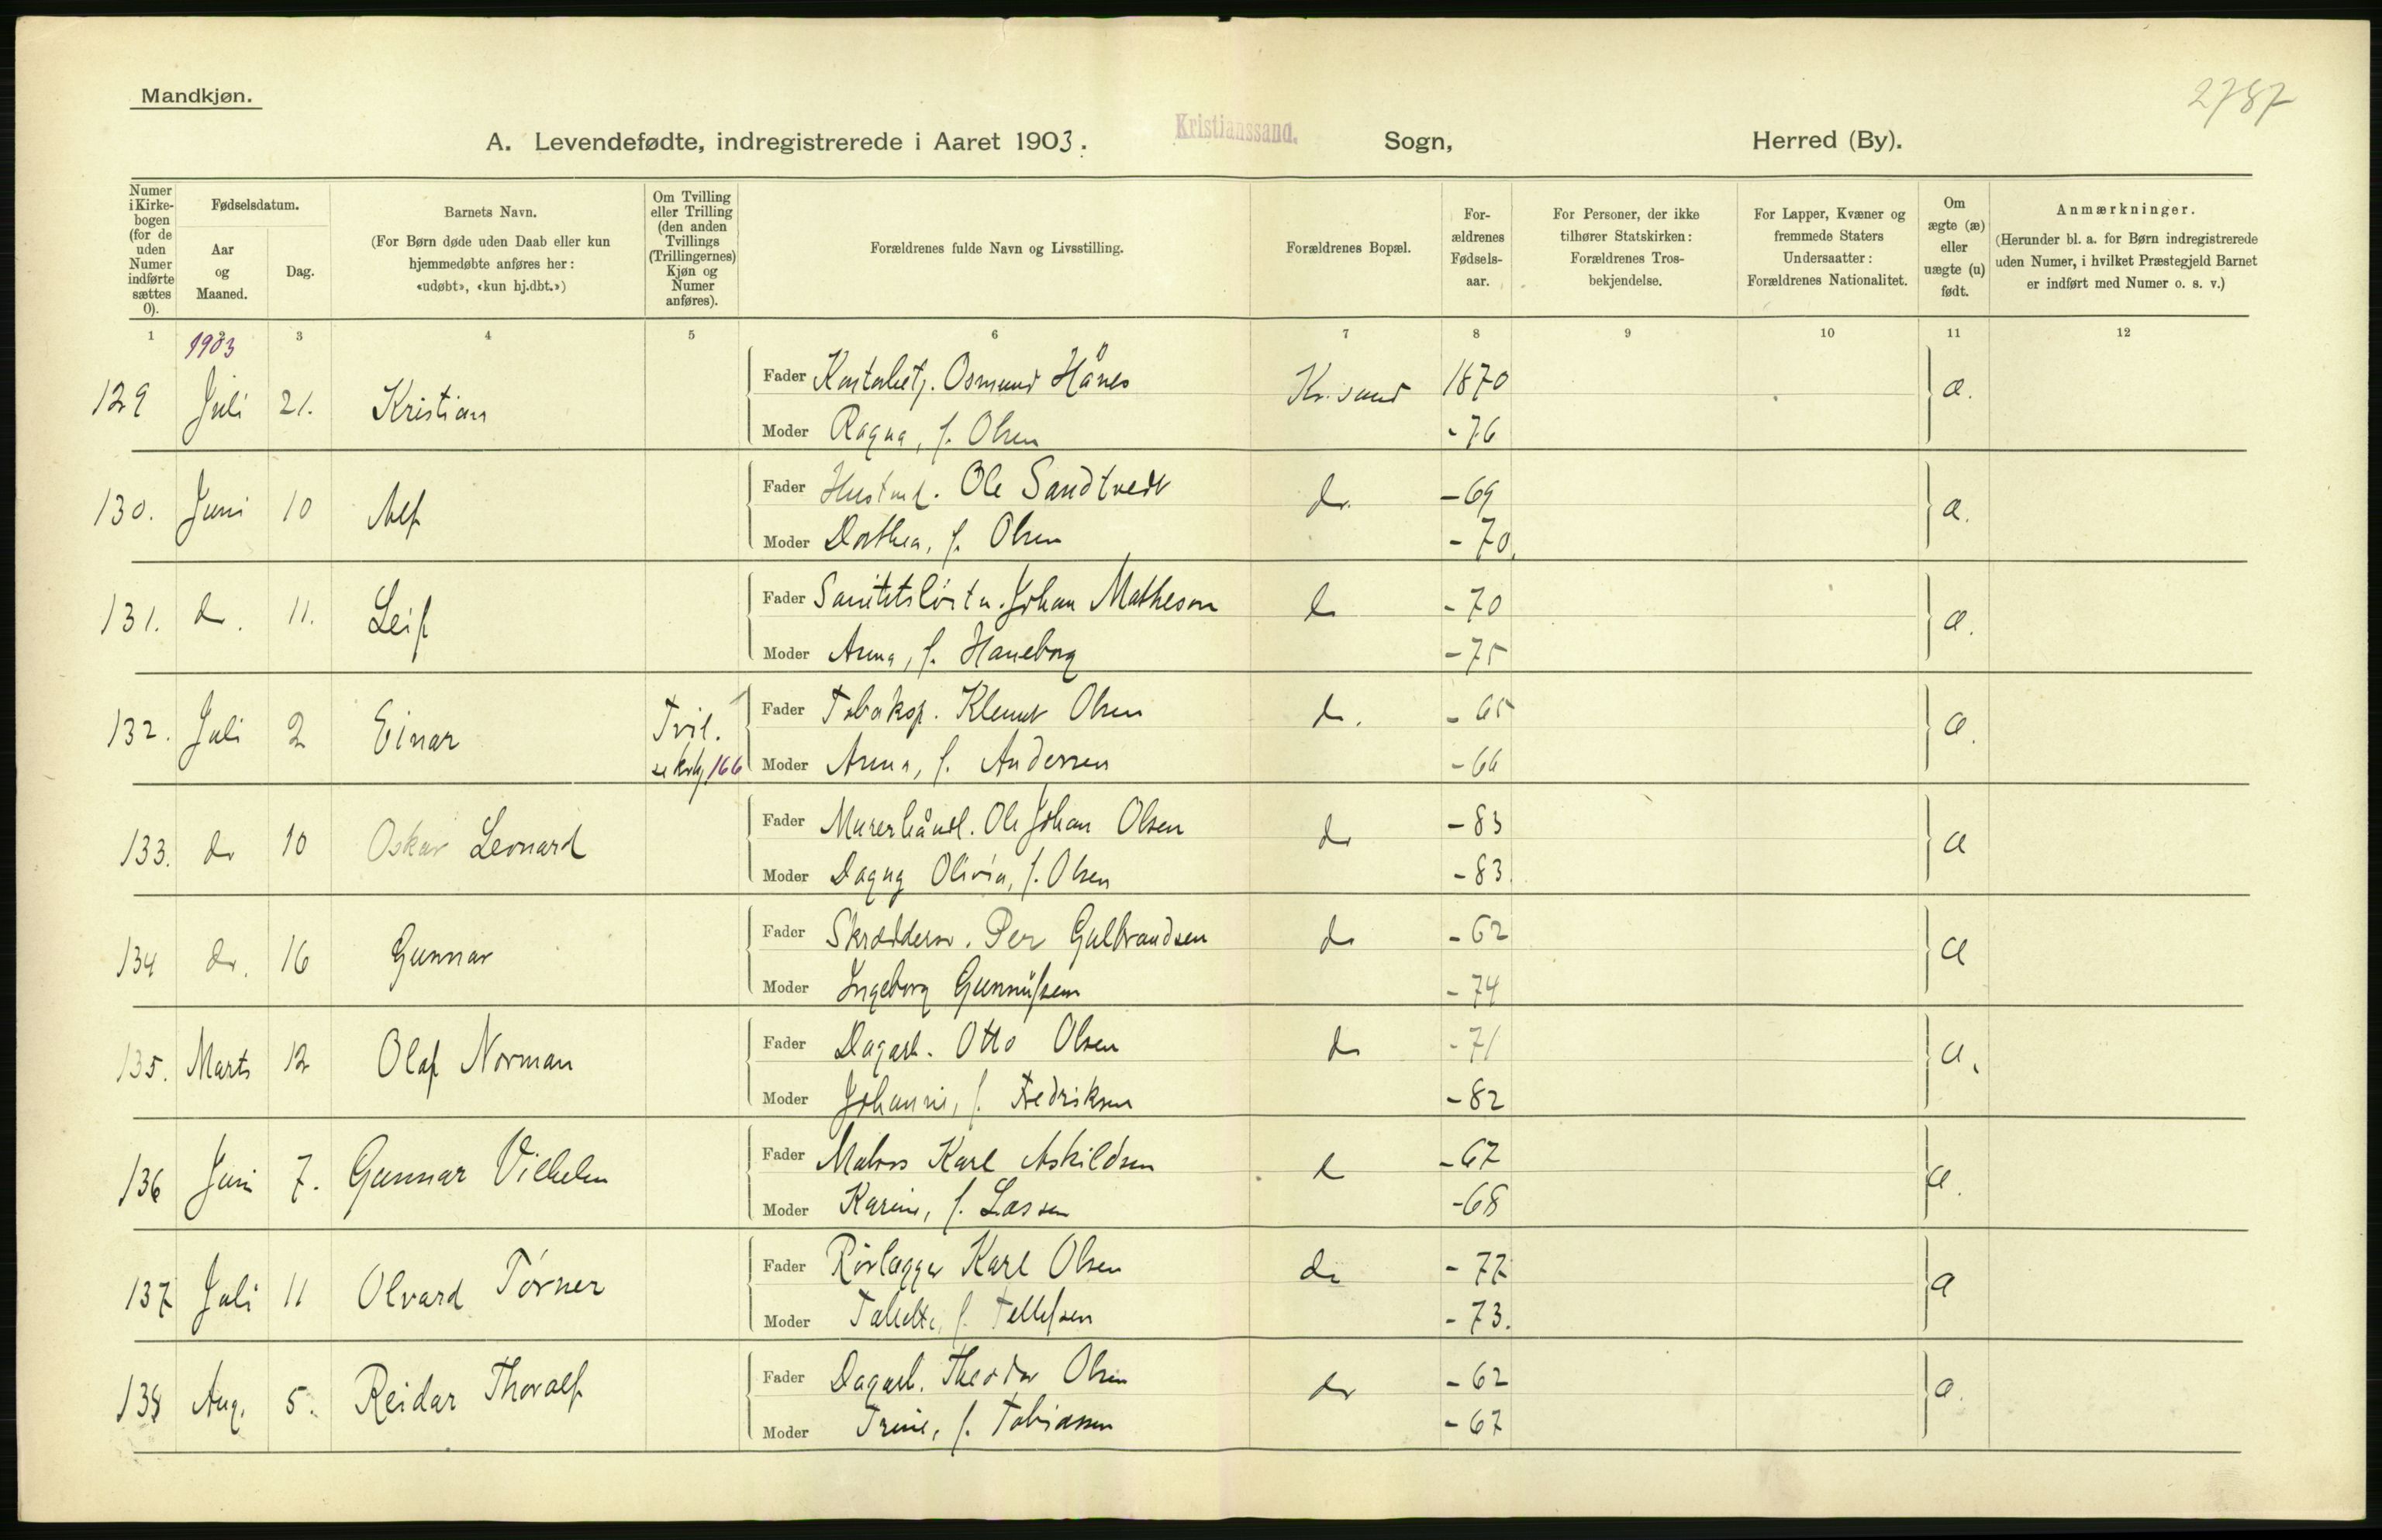 Mandkjøn.
2787
A. Levendefødte, indregistrerede i Aaret 1903. Kristianssand. Sogn, Herred (By).
Numer i Kirkebogen (for de uden Numer indførte sættes 0).
Fødselsdatum.
Aar og Maaned.
Dag.
Barnets Navn.
(For Børn døde uden Daab eller kun hjemmedøbte anføres her: «udøbt», «kun hj.dbt.»)
Om Tvilling eller Trilling (den anden Tvillings (Trillingernes) Kjøn og Numer anføres).
Forældrenes fulde Navn og Livsstilling.
Forældrenes Bopæl.
Forældrenes Fødselsaar.
For Personer, der ikke tilhører Statskirken: Forældrenes Trosbekjendelse.
For Lapper, Kvæner og fremmede Staters Undersaatter: Forældrenes Nationalitet.
Om ægte (æ) eller uægte (u) født.
Anmærkninger.
(Herunder bl. a. for Børn indregistrerede uden Numer, i hvilket Præstegjeld Barnet er indført med Numer o. s. v.)
1 3 4 5 6 7 8 9 10 11 12
1903
129 Juli 21. Kristian Fader Osmund Hånes Kr.sand 1870 æ.
Moder Ragna, f. Olsen -76
130. Juni 10 Alf Fader Ole Sandtvedt do. -69 æ.
Moder Dorthea, f. Olsen -70.
131. do. 11. Leif Fader Johan Matheson do -70 æ.
Moder Anna, f. Haneborg -75
132. Juli 2 Einar Tvil. Fader Olsen do. -65 æ.
166 Moder Anna, f. Andersen -66
133. do 10 Oskar Leonard Fader Murerhåndl. Ole Johan Olsen do -83 æ
Moder Dagny Olivia, f. Olsen -83.
134 do. 16 Gunnar Fader Skrædderm. Per Gulbrandsen do -62 æ
Moder Ingeborg Gunnufsen -74
135. Marts 12 Olaf Norman Fader Dagarb. Otto Olsen do -71 æ.
Moder Johanne, f. Fredriksen -82
136 Juni 7. Gunnar Vilhelm Fader Matros Karl Askildsen do -67 æ.
Moder Karine, f. Lassen -68
137 Juli 11 Olvard Tórner Fader Rørlægger Karl Olsen do -77 æ
Moder f. Tellefsen -73.
138 Aug. 5. Reidar Thoralf Fader Dagarb. Theodor Olsen do -62 æ.
Moder Trine, f. Tobiassen -67